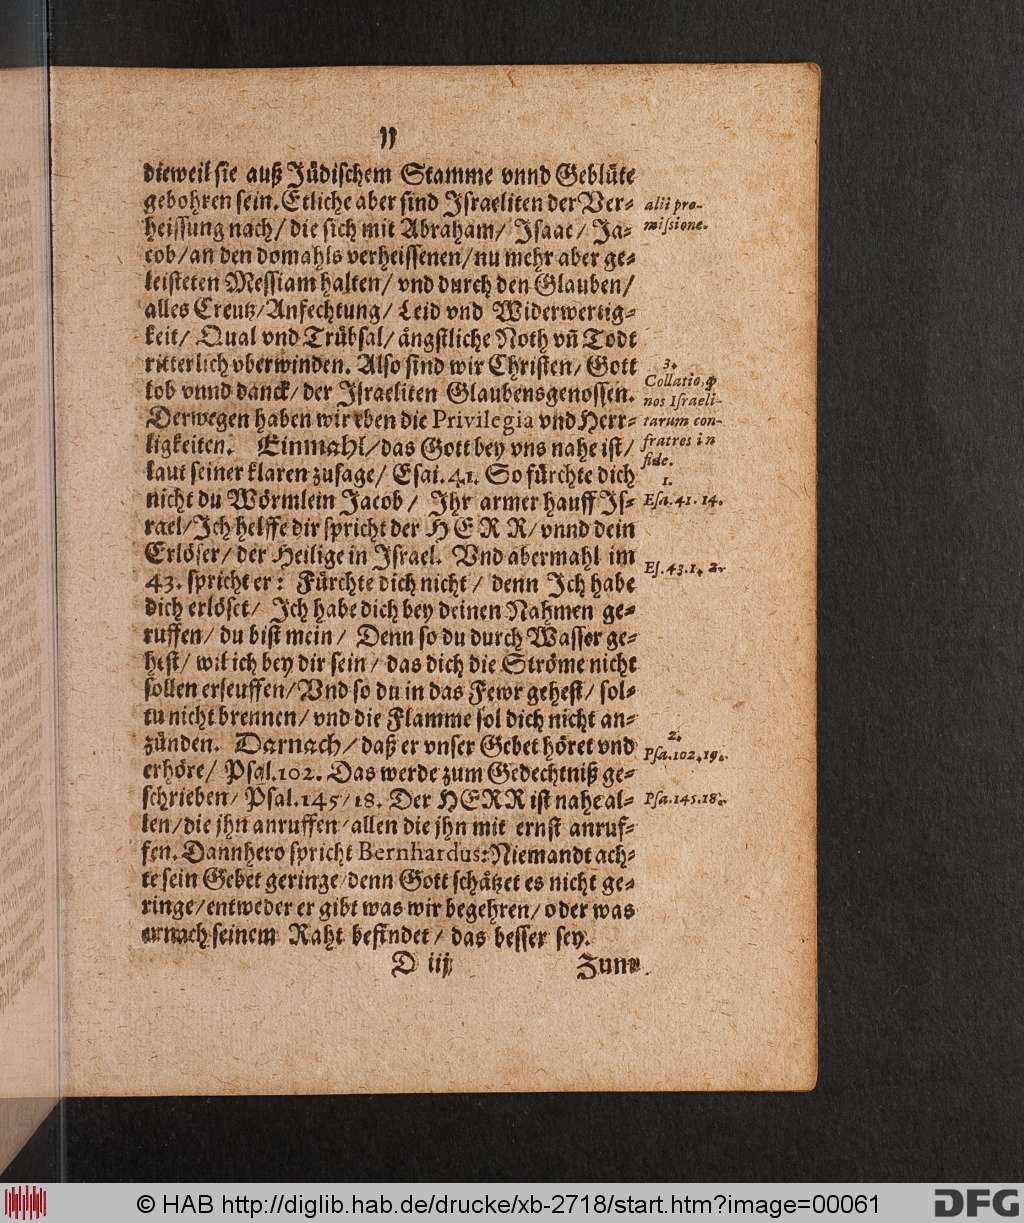 dieweil sie auß Jüdischem Stamme vnnd Geblüte
gebohren sein. Etliche aber sind Israeliten der Ver-
heissung nach/ die sich mit Abraham/ Isaac/ Ja-
cob/ an den domahls verheissenen/ nu mehr aber ge-
leisteten Messiam halten/ vnd durch den Glauben/
alles Creutz/ Anfechtung/ Leid vnd Widerwertig-
keit/ Qual vnd Trübsal/ ängstliche Noth vñ Todt
ritterlich vberwinden. Also sind wir Christen/ Gott
lob vnnd danck/ der Israeliten Glaubensgenossen.
Derwegen haben wir eben die Privilegia vnd Herr-
ligkeiten. Einmahl/ das Gott bey vns nahe ist/
laut seiner klaren zusage/ Esai. 41. So fürchte dich
nicht du Wörmlein Jacob/ Ihr armer hauff Is-
rael/ Ich helffe dir spricht der HERR/ vnnd dein
Erlöser/ der Heilige in Israel. Vnd abermahl im
43. spricht er: Fürchte dich nicht/ denn Ich habe
dich erlöset/ Ich habe dich bey deinen Nahmen ge-
ruffen/ du bist mein/ Denn so du durch Wasser ge-
hest/ wil ich bey dir sein/ das dich die Ströme nicht
sollen erseuffen/ Vnd so du in das Fewr gehest/ sol-
tu nicht brennen/ vnd die Flamme sol dich nicht an-
zünden. Darnach/ daß er vnser Gebet höret vnd
erhöre/ Psal. 102. Das werde zum Gedechtniß ge-
schrieben/ Psal. 145/ 18. Der HERR ist nahe al-
len/ die jhn anruffen/ allen die jhn mit ernst anruf-
fen. Dannhero spricht Bernhardus: Niemandt ach-
te sein Gebet geringe/ denn Gott schätzet es nicht ge-
ringe/ entweder er gibt was wir begehren/ oder was
er nach seinem Raht befindet/ das besser sey.
D iij Zum
alii pro-
missione.
3.
Collatio, φ
nos Israeli-
tarum con-
fratres in
fide.
1.
Esa. 41. 14.
Es. 43. 1. 2.
2.
Psa. 102. 19.
Psa. 145. 18.
© HAB http://diglib.hab.de/drucke/xb-2718/start.htm?image=00061
DFG